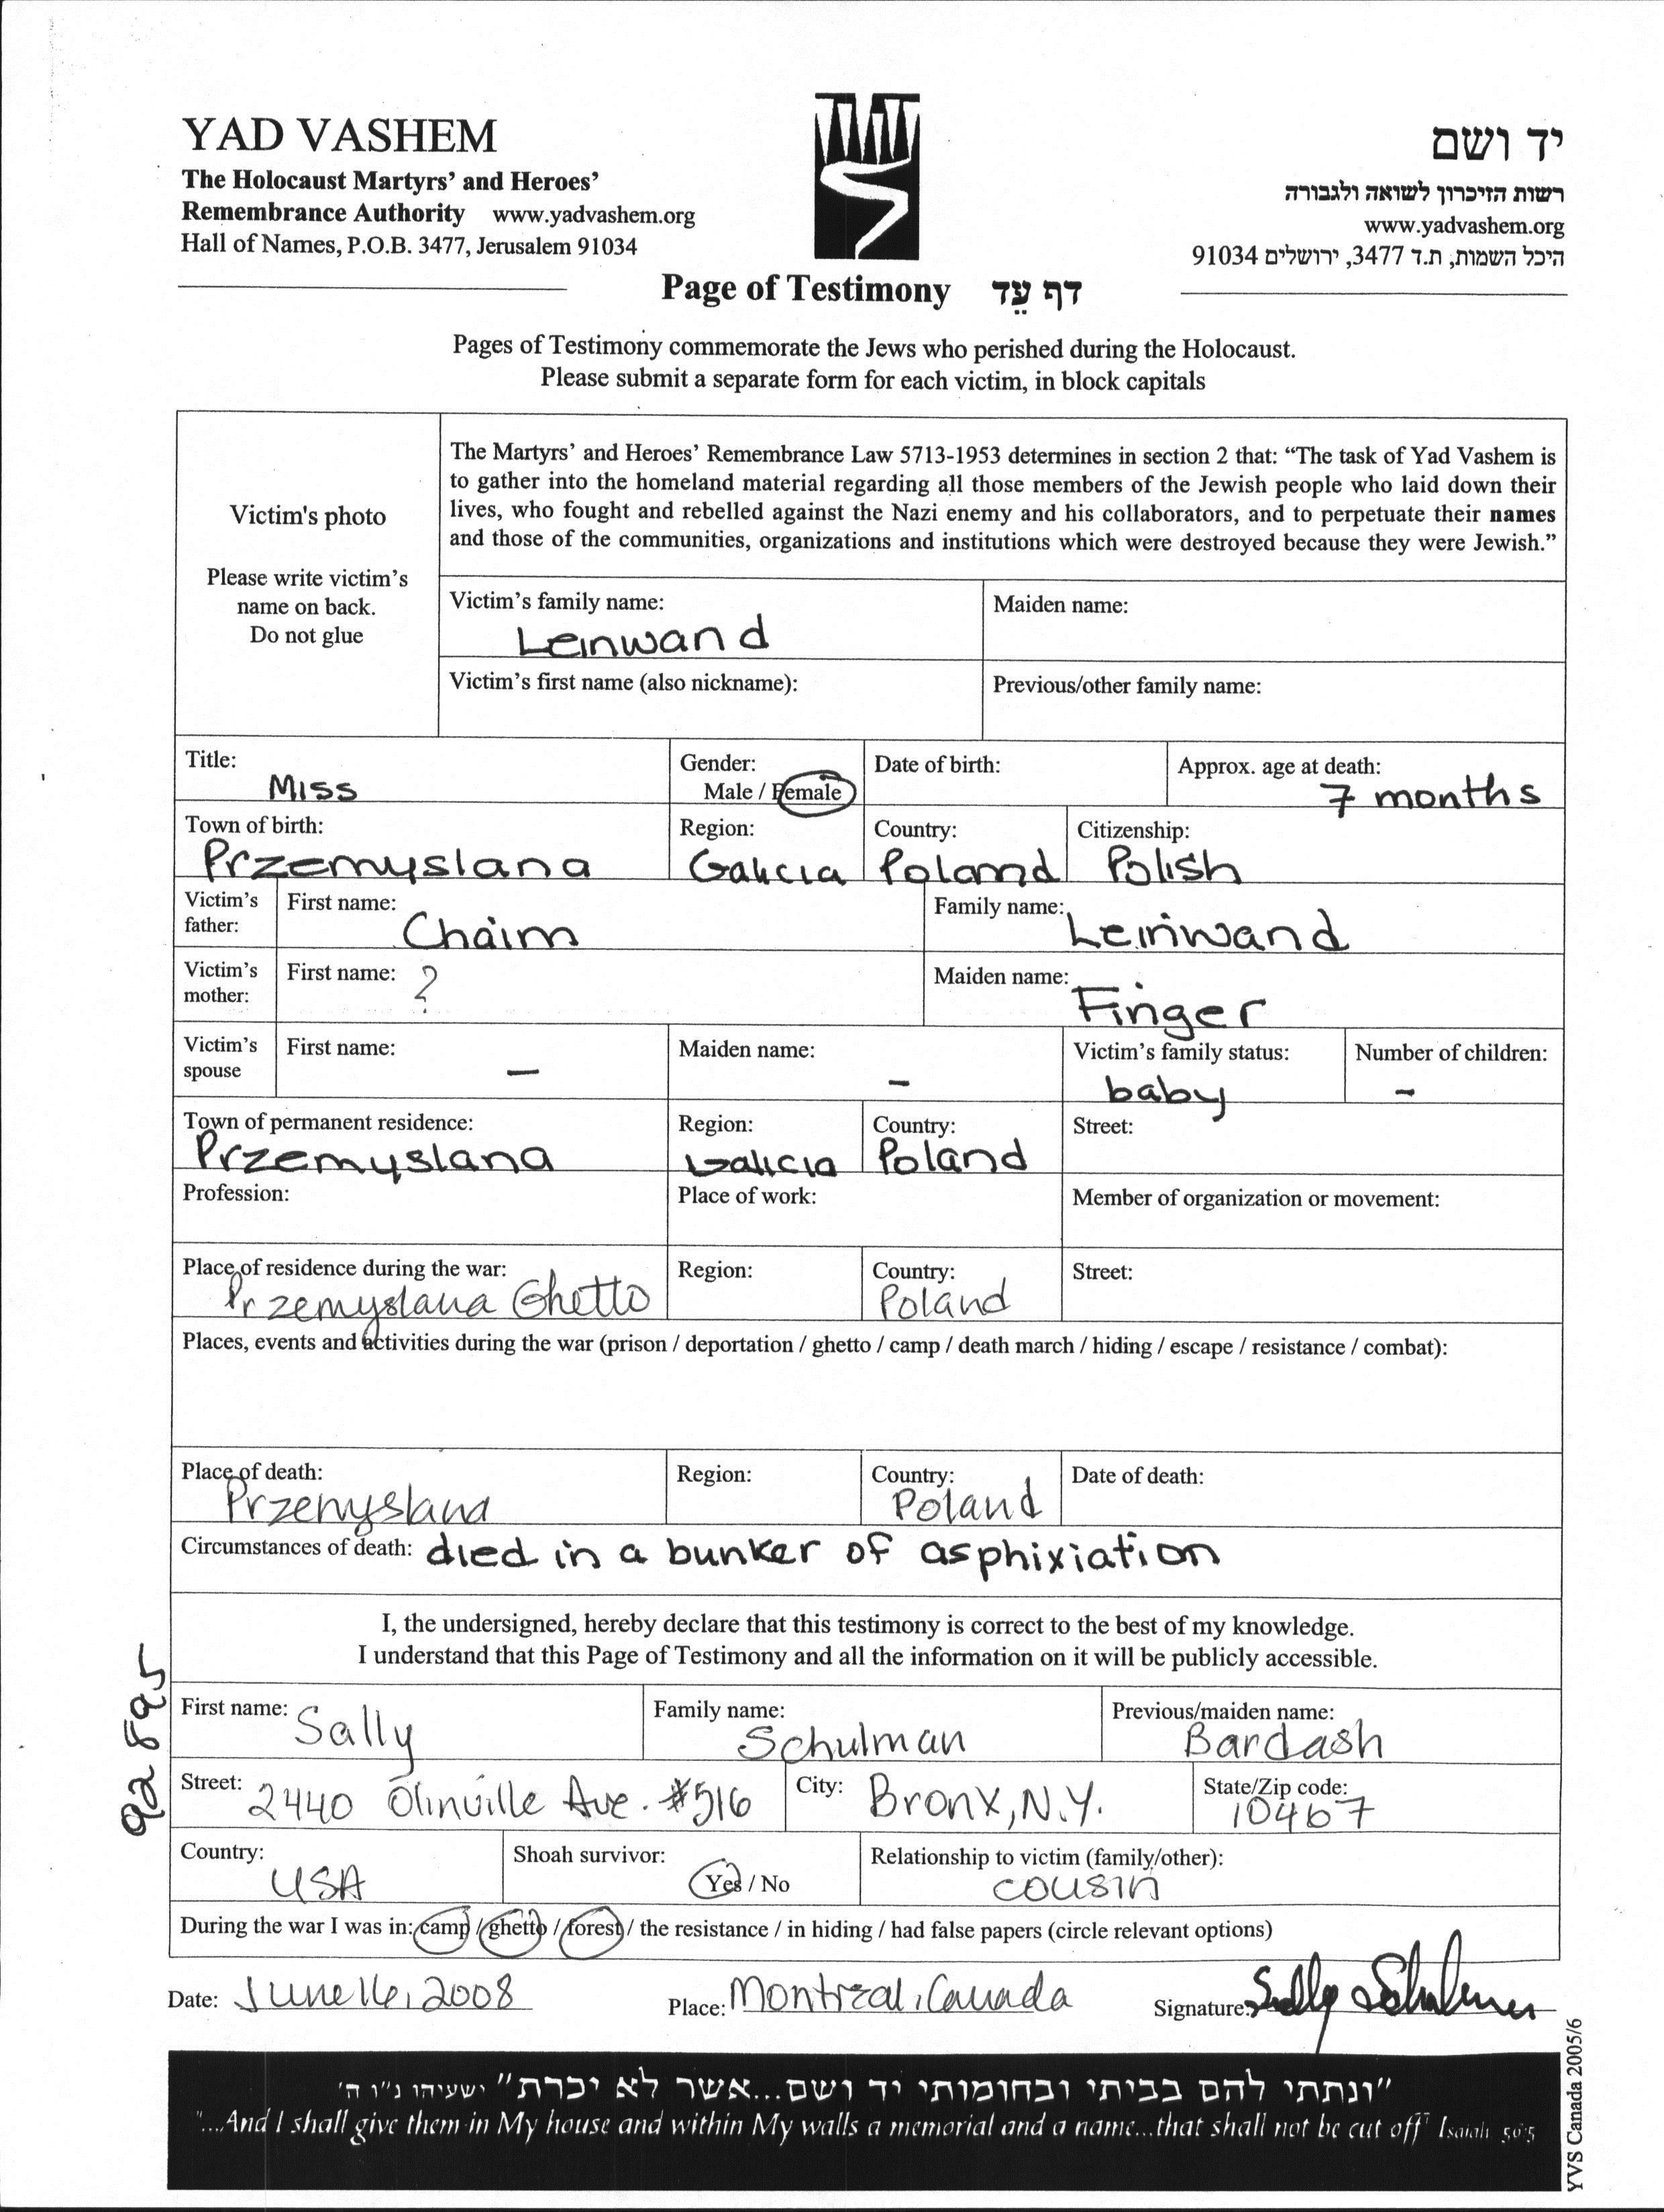 YAD VASHEM
The Holocaust Martyrs' and Heroes'
Remembrance Authority www.yadvashem.org
Hall of Names, P.O.B. 3477, Jerusalem 91034
יד ושם
רשות הזיכרון לשואה ולגבורה
www.yadvashem.org
היכל השמות, ת.ד 3477, ירושלים 91034
Page of Testimony דף עֵד
Pages of Testimony commemorate the Jews who perished during the Holocaust.
Please submit a separate form for each victim, in block capitals
Victim's photo
Please write victim's
name on back.
Do not glue
The Martyrs' and Heroes' Remembrance Law 5713-1953 determines in section 2 that: "The task of Yad Vashem is
to gather into the homeland material regarding all those members of the Jewish people who laid down their
lives, who fought and rebelled against the Nazi enemy and his collaborators, and to perpetuate their names
and those of the communities, organizations and institutions which were destroyed because they were Jewish."
Victim's family name: Maiden name:
Leinwand
Victim's first name (also nickname): Previous/other family name:
Title: Gender: Date of birth: Approx. age at death:
Miss Male / Female 7 months
Town of birth: Region: Country: Citizenship:
Przemyslana Galicia Poland Polish
Victim's father: First name: Chaim Family name: Leinwand
Victim's mother: First name: ? Maiden name: Finger
Victim's spouse First name: – Maiden name: – Victim's family status: baby Number of children: –
Town of permanent residence: Region: Country: Street:
Przemyslana Galicia Poland
Profession: Place of work: Member of organization or movement:
Place of residence during the war: Region: Country: Street:
Przemyslana Ghetto Poland
Places, events and activities during the war (prison / deportation / ghetto / camp / death march / hiding / escape / resistance / combat):
Place of death: Region: Country: Date of death:
Przemyslana Poland
Circumstances of death: died in a bunker of asphixiation
I, the undersigned, hereby declare that this testimony is correct to the best of my knowledge.
I understand that this Page of Testimony and all the information on it will be publicly accessible.
First name: Sally Family name: Schulman Previous/maiden name: Bardash
Street: 2440 Olinville Ave. #516 City: Bronx, N.Y. State/Zip code: 10467
Country: USA Shoah survivor: Yes / No Relationship to victim (family/other): cousin
During the war I was in: camp / ghetto / forest / the resistance / in hiding / had false papers (circle relevant options)
Date: June 16, 2008 Place: Montreal, Canada Signature: Sally Schulman
92895
"ונתתי להם בביתי ובחומותי יד ושם...אשר לא יכרת" ישעיהו נ"ו ה'
"...And I shall give them in My house and within My walls a memorial and a name...that shall not be cut off" Isaiah 56:5
YVS Canada 2005/6